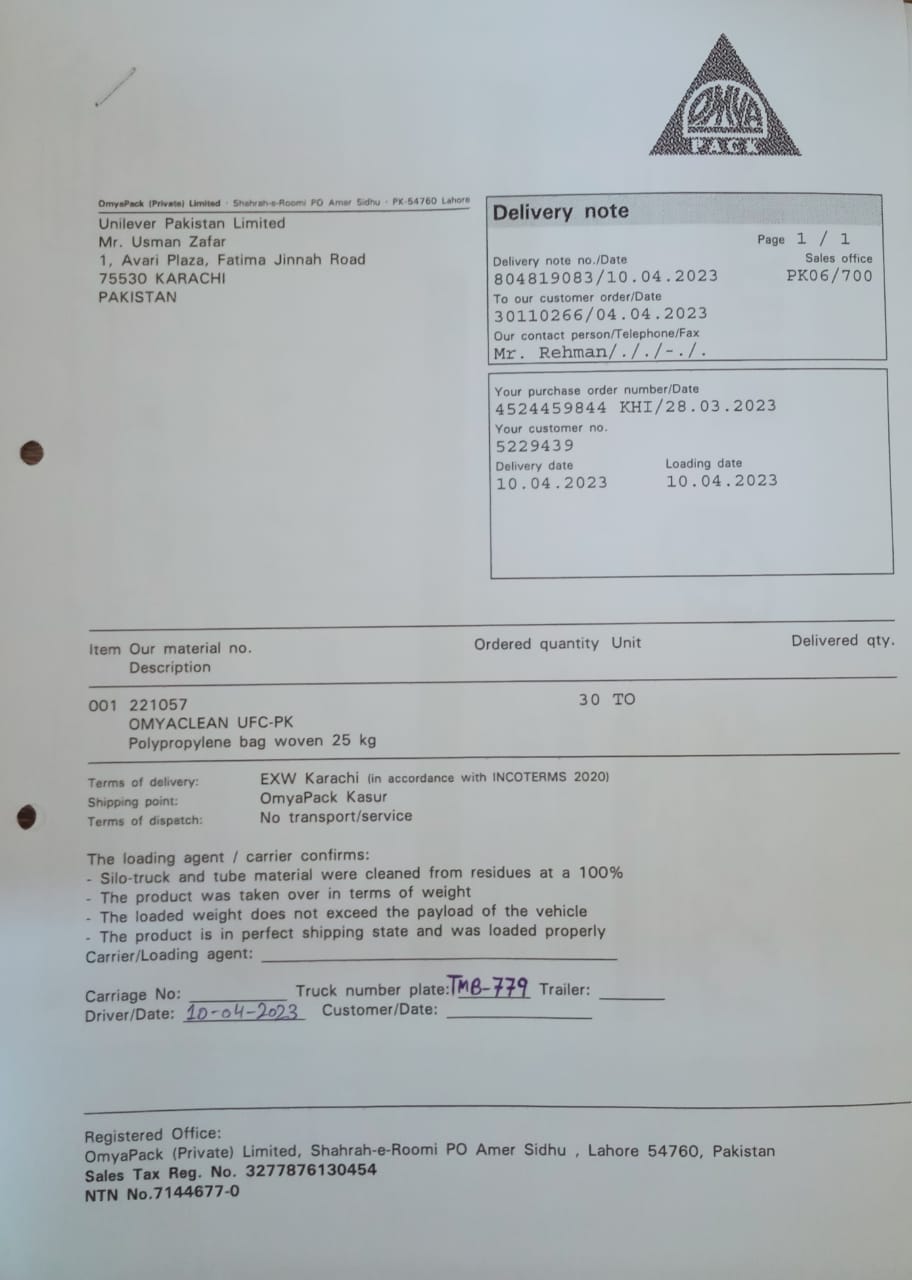 OMYA
PACK
OmyaPack (Private) Limited · Shahrah-e-Roomi PO Amer Sidhu · PK-54760 Lahore
Unilever Pakistan Limited
Mr. Usman Zafar
1, Avari Plaza, Fatima Jinnah Road
75530 KARACHI
PAKISTAN
Delivery note
Page 1 / 1
Delivery note no./Date Sales office
804819083/10.04.2023 PK06/700
To our customer order/Date
30110266/04.04.2023
Our contact person/Telephone/Fax
Mr. Rehman/././-./.
Your purchase order number/Date
4524459844 KHI/28.03.2023
Your customer no.
5229439
Delivery date Loading date
10.04.2023 10.04.2023
Item Our material no. Ordered quantity Unit Delivered qty.
Description
001 221057 30 TO
OMYACLEAN UFC-PK
Polypropylene bag woven 25 kg
Terms of delivery: EXW Karachi (in accordance with INCOTERMS 2020)
Shipping point: OmyaPack Kasur
Terms of dispatch: No transport/service
The loading agent / carrier confirms:
- Silo-truck and tube material were cleaned from residues at a 100%
- The product was taken over in terms of weight
- The loaded weight does not exceed the payload of the vehicle
- The product is in perfect shipping state and was loaded properly
Carrier/Loading agent:
Carriage No: Truck number plate: TMB-779 Trailer:
Driver/Date: 10-04-2023 Customer/Date:
Registered Office:
OmyaPack (Private) Limited, Shahrah-e-Roomi PO Amer Sidhu , Lahore 54760, Pakistan
Sales Tax Reg. No. 3277876130454
NTN No.7144677-0